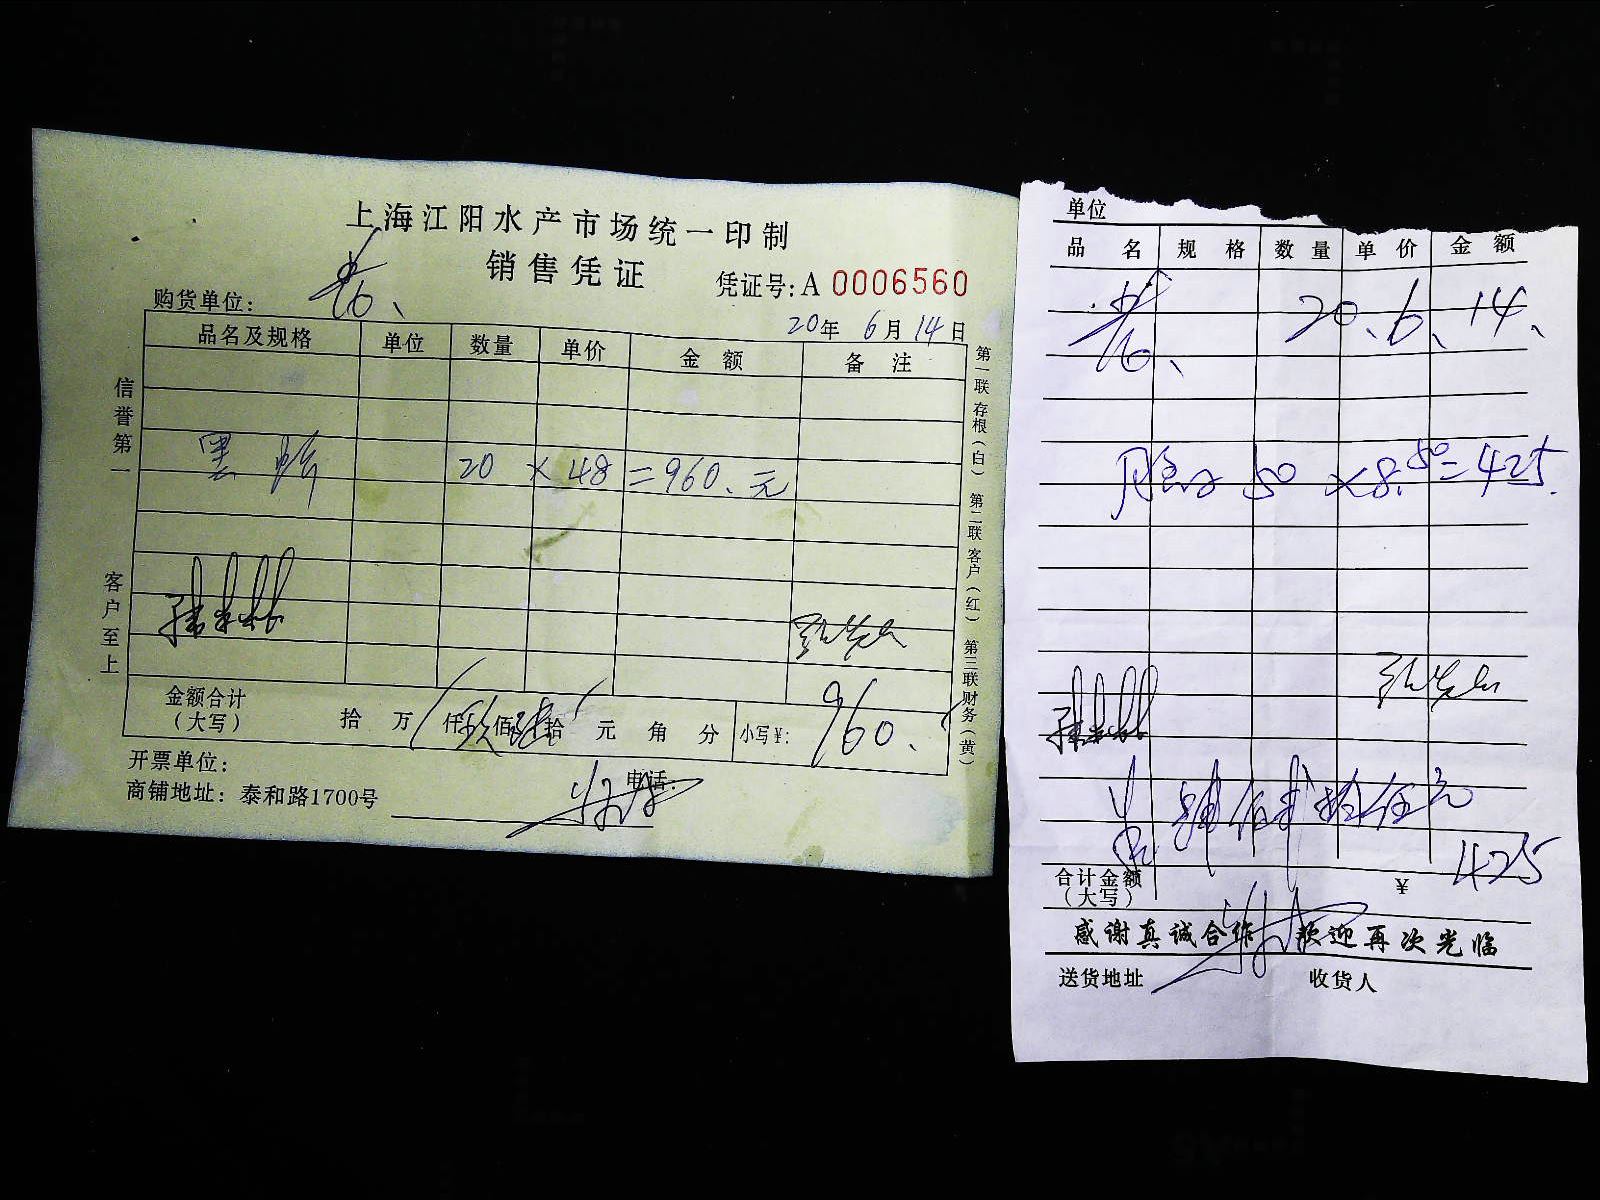 上海江阳水产市场统一印制
销售凭证
凭证号: A 0006560
购货单位:
20年 6月 14日
品名及规格 单位 数量 单价 金额 备注
20 × 48 = 960.元
金额合计(大写) 拾 万 仟 玖 佰 陆 拾 元 角 分 小写¥: 960.
开票单位:
电话:
商铺地址: 泰和路1700号
信誉第一
客户至上
第一联 存根(白) 第二联 客户(红) 第三联 财务(黄)
单位
品名 规格 数量 单价 金额
20.6.14.
50 × 8.50 = 425.
肆佰贰拾伍元
合计金额(大写) ¥ 425
感谢真诚合作 欢迎再次光临
送货地址 收货人